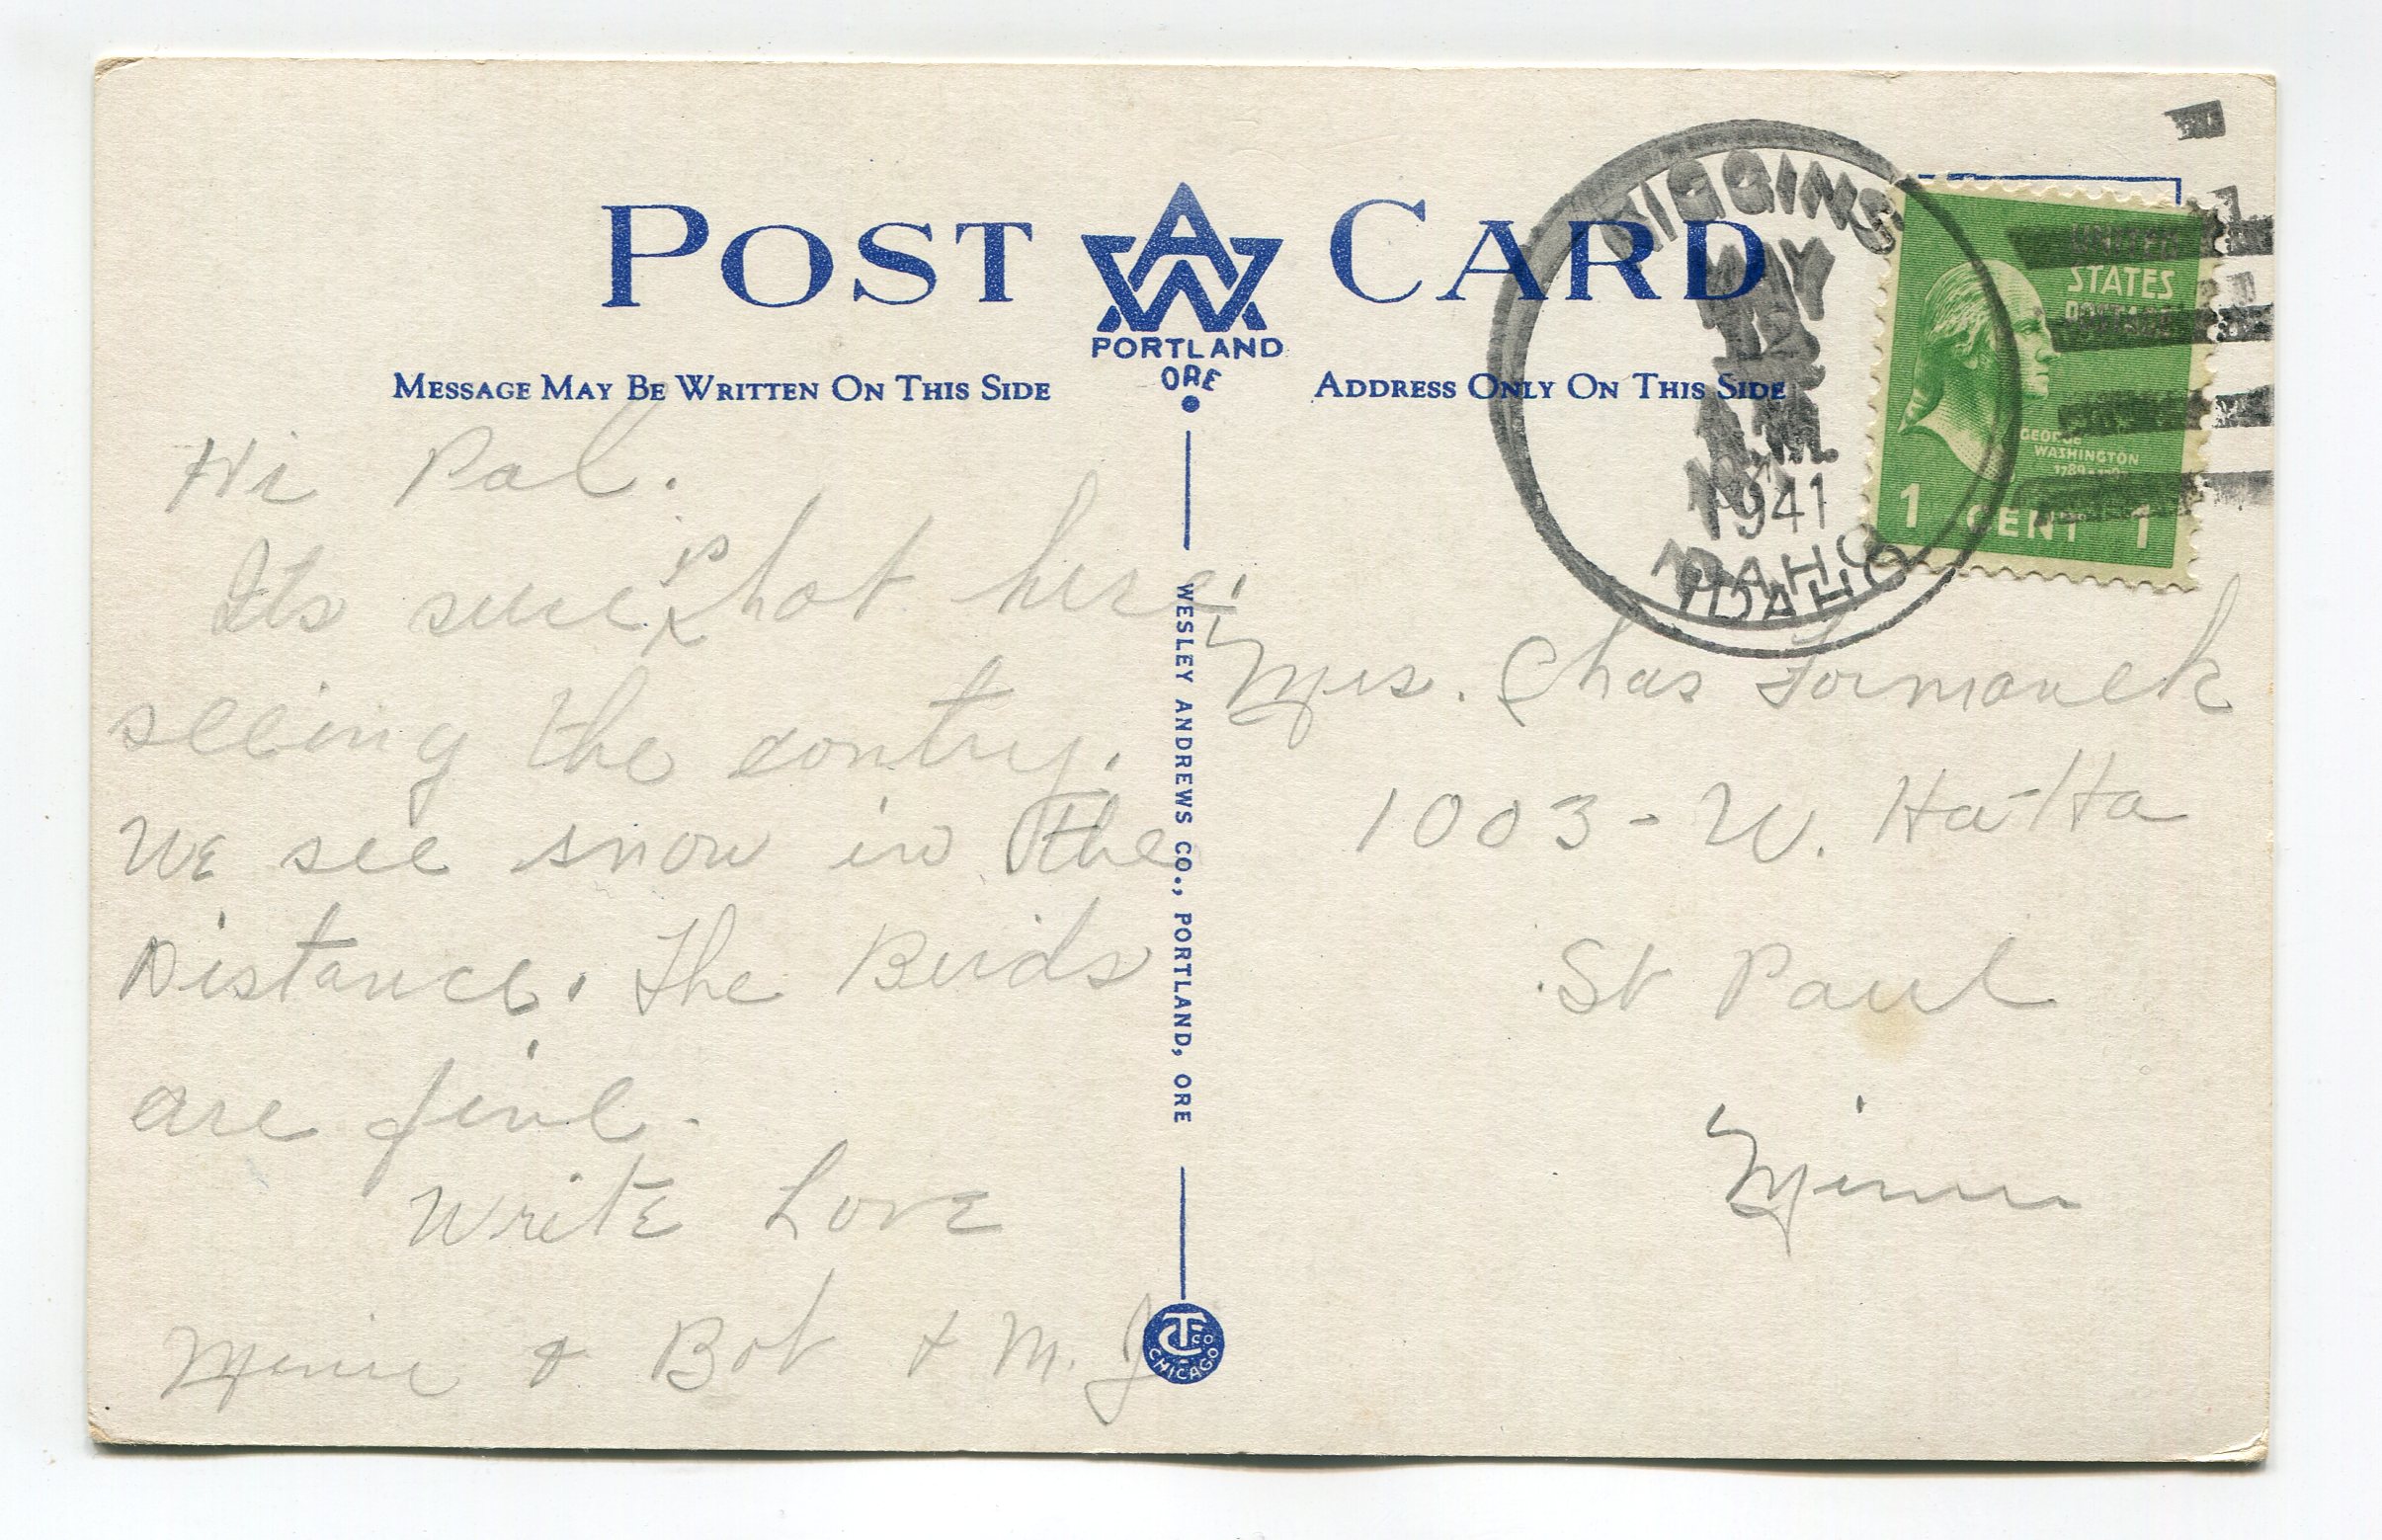 POST CARD
AW
PORTLAND
ORE
MESSAGE MAY BE WRITTEN ON THIS SIDE
ADDRESS ONLY ON THIS SIDE
RIGGINS
MAY
12
A.M.
1941
IDAHO
UNITED
STATES
POSTAGE
GEORGE
WASHINGTON
1 CENT 1
Hi Pal.
Its sure is hot here.
seeing the contry.
We see snow in the
Distance. The Birds
are fine.
Write Love
Minnie & Bob & M. J
WESLEY ANDREWS CO., PORTLAND, ORE
CT CO
CHICAGO
Mrs. Chas Formanek
1003 - W. Hatta
St Paul
Minn